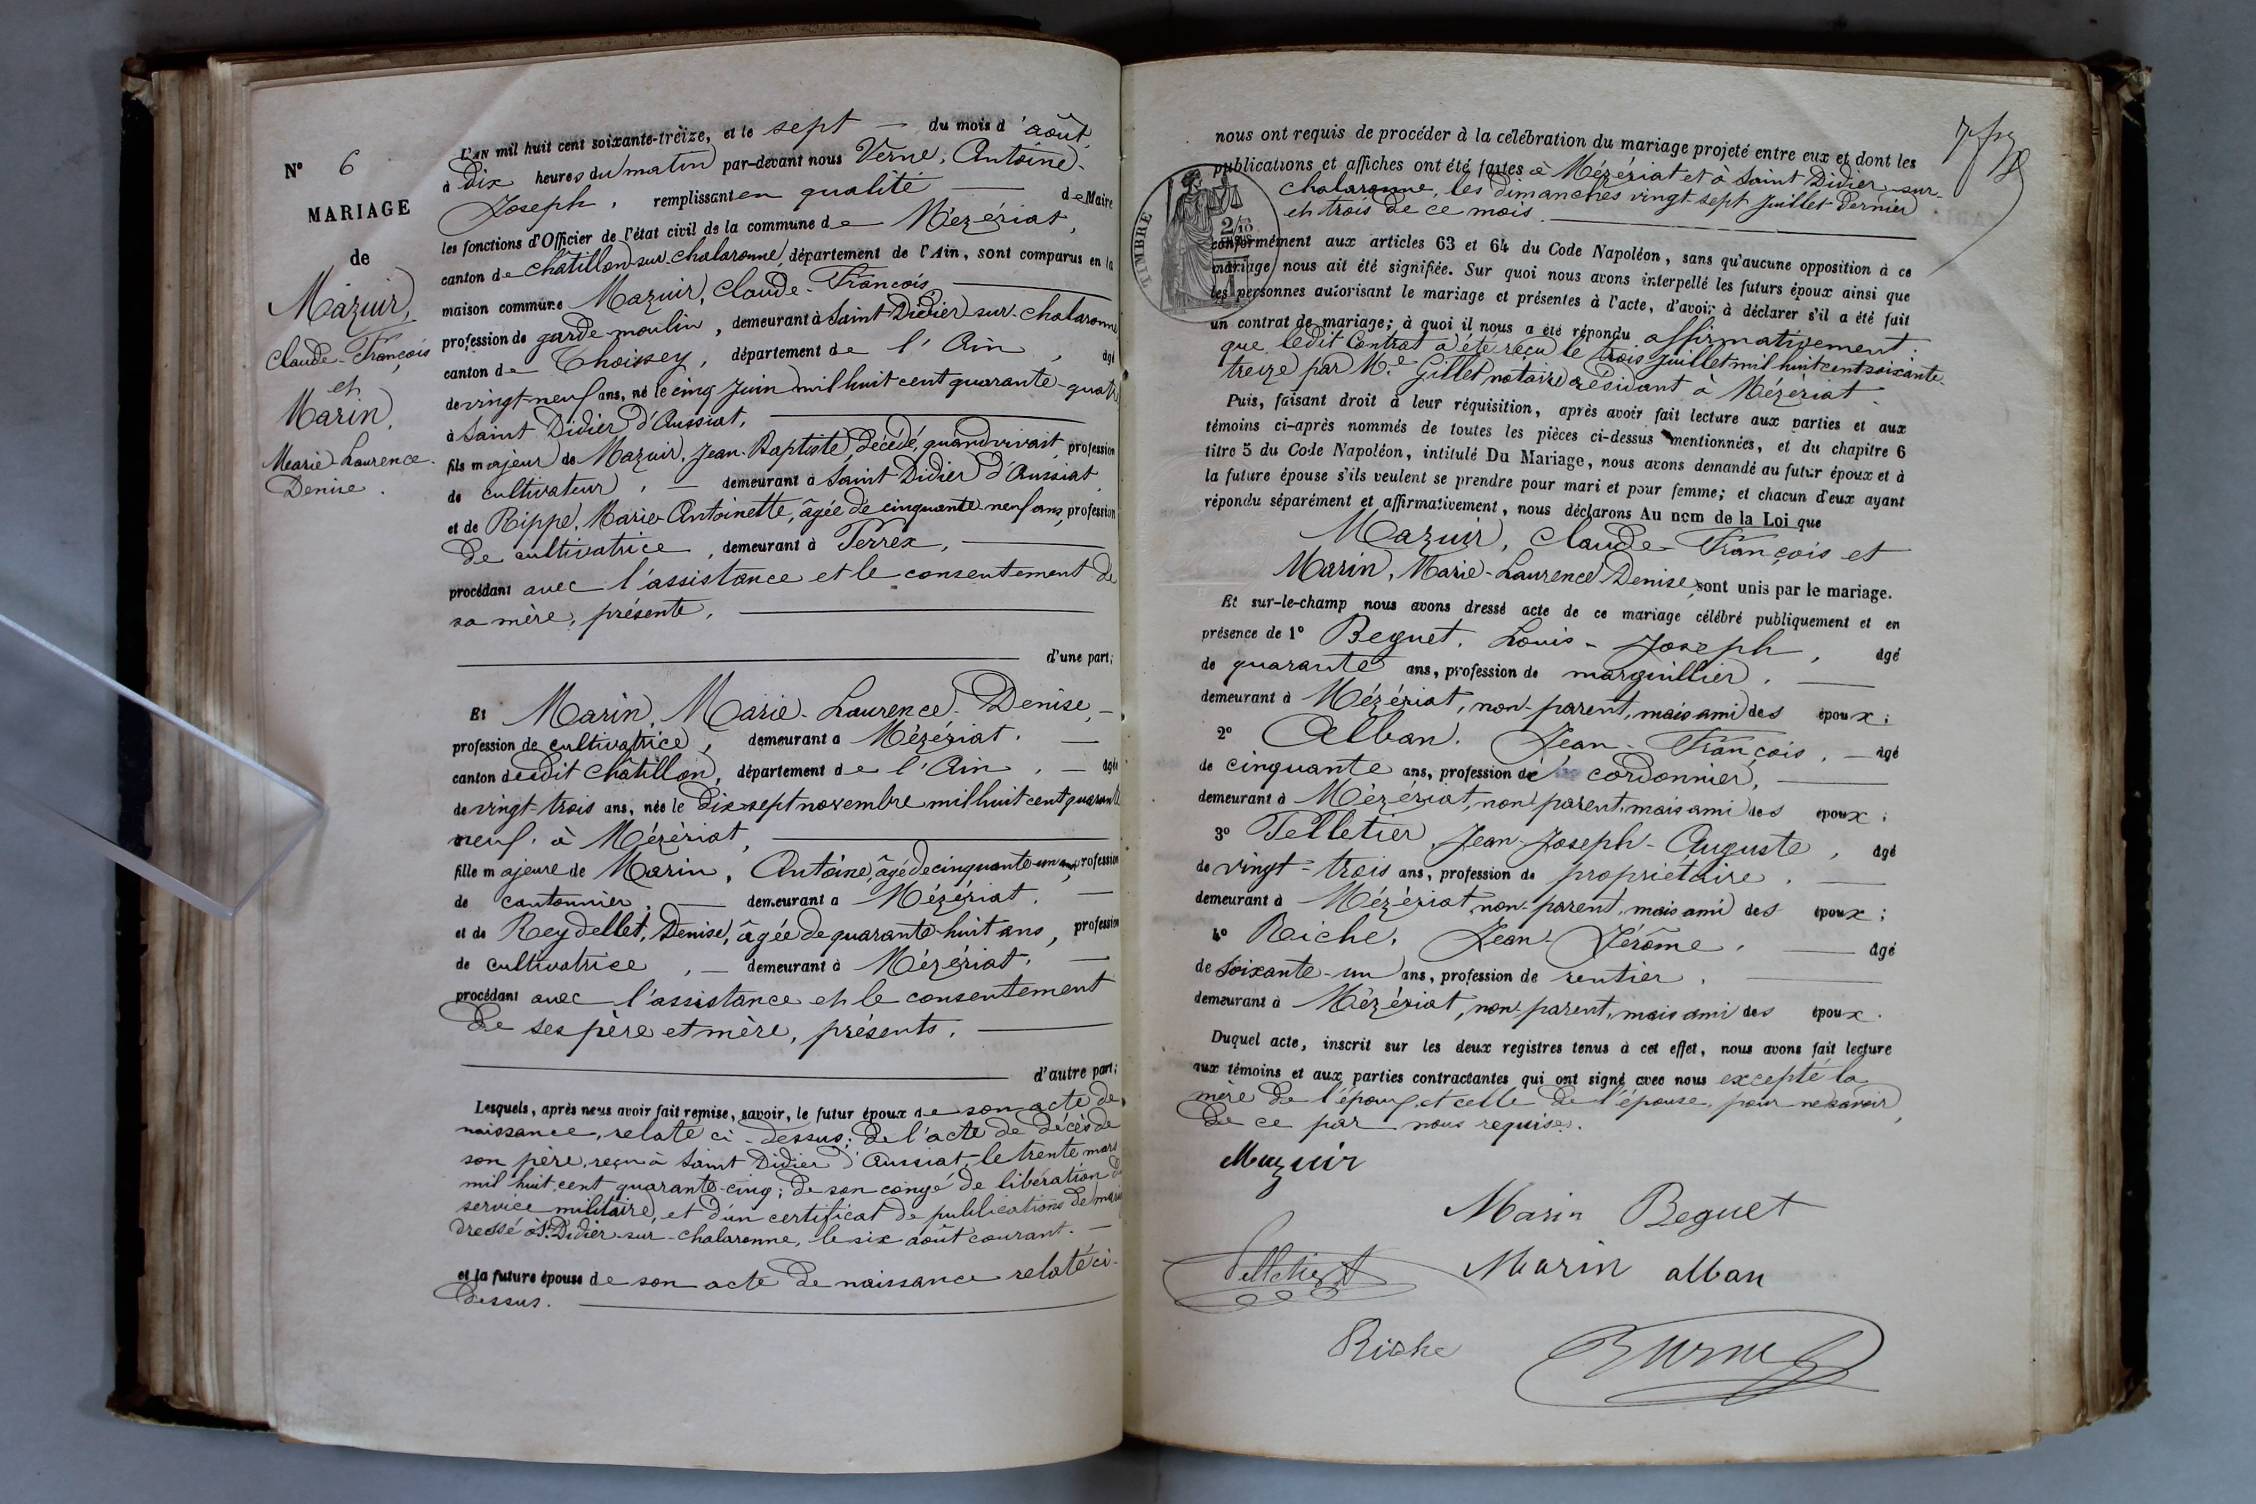 N° 6
MARIAGE
de
Mazuir,
Claude-François
et
Marin,
Marie-Laurence-
Denise.
L'AN mil huit cent soixante-treize, et le sept — du mois d'août,
à dix heures du matin par-devant nous Verne, Antoine-
Joseph, remplissant en qualité — de Maire
les fonctions d'Officier de l'état civil de la commune de Mézériat,
canton de Châtillon-sur-Chalaronne, département de l'Ain, sont comparus en la
maison commune Mazuir, Claude-François,
profession de garde moulin, demeurant à Saint-Didier-sur-Chalaronne
canton de Thoissey, département de l'Ain, âgé
de vingt-neuf ans, né le cinq juin mil huit cent quarante-quatre
à Saint Didier d'Aussiat,
fils majeur de Mazuir, Jean-Baptiste, décédé, quand vivait, profession
de cultivateur, — demeurant à Saint Didier d'Aussiat
et de Rippe, Marie-Antoinette, âgée de cinquante-neuf ans, profession
de cultivatrice, demeurant à Perrex,
procédant avec l'assistance et le consentement de
sa mère, présente,
d'une part;
Et Marin, Marie-Laurence-Denise, —
profession de cultivatrice, demeurant à Mézériat. —
canton dudit Châtillon, département de l'Ain, — âgée
de vingt-trois ans, née le dix-sept novembre mil huit cent quarante
neuf, à Mézériat,
fille majeure de Marin, Antoine, âgé de cinquante-un ans, profession
de cantonnier, — demeurant à Mézériat, —
et de Reydellet, Denise, âgée de quarante-huit ans, profession
de cultivatrice, — demeurant à Mézériat. —
procédant avec l'assistance et le consentement
de ses père et mère, présents,
d'autre part;
Lesquels, après nous avoir fait remise, savoir, le futur époux de son acte de
naissance, relaté ci-dessus; de l'acte de décès de
son père, reçu à Saint Didier d'Aussiat, le trente mars
mil huit cent quarante-cinq; de son congé de libération du
service militaire, et d'un certificat de publications de mariage
dressé à St Didier-sur-Chalaronne, le six août courant. —
et la future épouse de son acte de naissance relaté ci-
dessus.
nous ont requis de procéder à la célébration du mariage projeté entre eux et dont les
publications et affiches ont été faites à Mézériat et à Saint Didier-sur-
Chalaronne, les dimanches vingt-sept juillet dernier
et trois de ce mois.
TIMBRE
2/10
conformément aux articles 63 et 64 du Code Napoléon, sans qu'aucune opposition à ce
mariage nous ait été signifiée. Sur quoi nous avons interpellé les futurs époux ainsi que
les personnes autorisant le mariage et présentes à l'acte, d'avoir à déclarer s'il a été fait
un contrat de mariage; à quoi il nous a été répondu affirmativement:
que ledit Contrat a été reçu le trois juillet mil huit cent soixante-
treize par Me Gillet notaire résidant à Mézériat.
Puis, faisant droit à leur réquisition, après avoir fait lecture aux parties et aux
témoins ci-après nommés de toutes les pièces ci-dessus mentionnées, et du chapitre 6
titre 5 du Code Napoléon, intitulé Du Mariage, nous avons demandé au futur époux et à
la future épouse s'ils veulent se prendre pour mari et pour femme; et chacun d'eux ayant
répondu séparément et affirmativement, nous déclarons Au nom de la Loi que
Mazuir, Claude-François et
Marin, Marie-Laurence Denise, sont unis par le mariage.
Et sur-le-champ nous avons dressé acte de ce mariage célébré publiquement et en
présence de 1° Beguet, Louis-Joseph, âgé
de quarante ans, profession de marguillier,
demeurant à Mézériat, non-parent, mais ami des époux;
2° Alban, Jean-François, — âgé
de cinquante ans, profession de cordonnier,
demeurant à Mézériat, non parent, mais ami des époux;
3° Pelletier, Jean-Joseph-Auguste, âgé
de vingt-trois ans, profession de propriétaire,
demeurant à Mézériat, non-parent, mais ami des époux;
4° Riche, Jean-Jérôme, — âgé
de soixante-un ans, profession de rentier,
demeurant à Mézériat, non-parent, mais ami des époux.
Duquel acte, inscrit sur les deux registres tenus à cet effet, nous avons fait lecture
aux témoins et aux parties contractantes qui ont signé avec nous excepté la
mère de l'époux, et celle de l'épouse, pour ne savoir,
de ce par nous requises.
Mazuir
Marin Beguet
Pelletier A
Marin alban
Riche